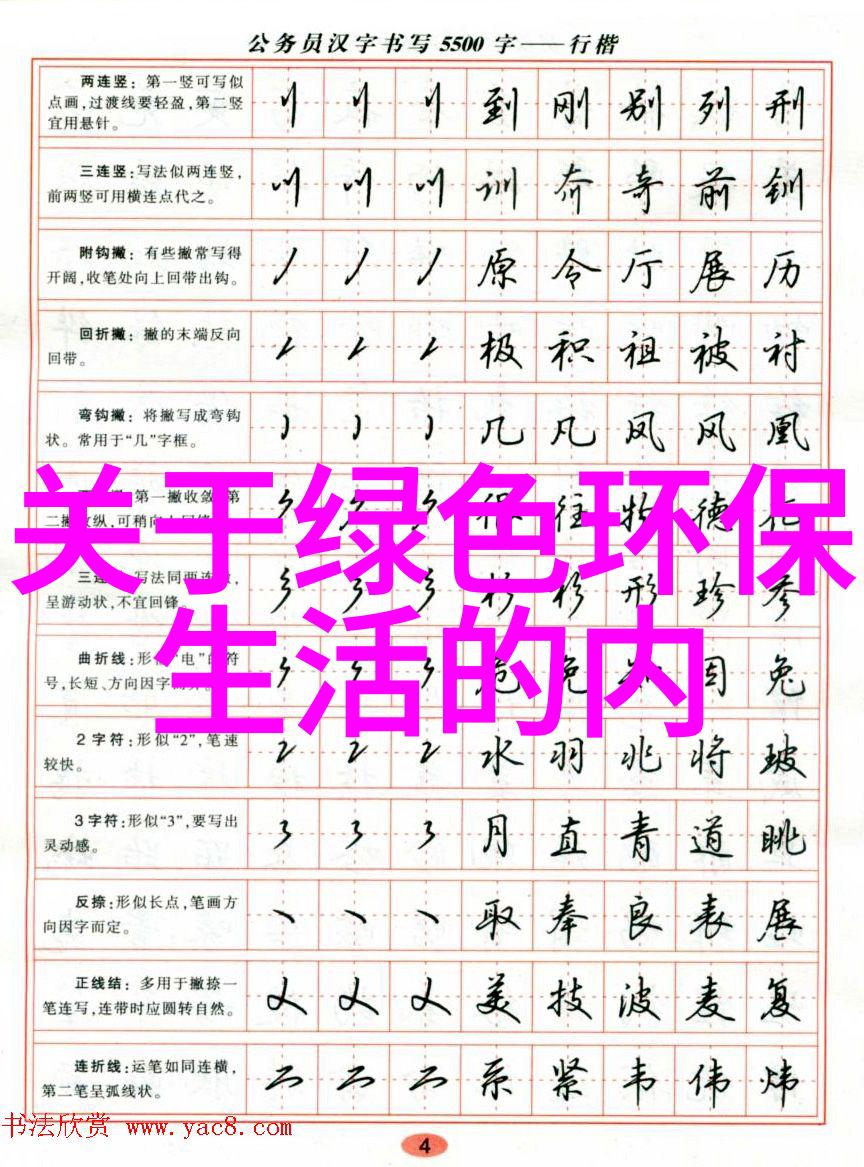 公务员汉字书写5500字——行楷
两连竖：第一竖可写似
点画，过渡线要轻盈，第二竖
宜用悬针。
到 刚 别 列 刑
三连竖：写法似两连竖，
前两竖可用横连点代之。
训 奇 前 钏
附钩撇：有些撇常写得
开阔，收笔处向上回带出钩。
原 令 厅 展 历
回折撇：撇的末端反向
回带。
极 积 祖 被 衬
弯钩撇：将撇写成弯钩
状。常用于“几”字框。
几 凡 凤 风 凰
关于绿色环保
生活的内
第一撇收敛
往 牧 德
三连 写法同两连
呈游动状，不宜回锋。
杉 形 珍 参
曲折线：形 “电”的符
号，长短、方向因字
危 免 因 兔
2字符：形似“2”，笔速
较快。
2 2 2 水 羽 兆 将 玻
3字符：形似“3”，要写出
灵动感。
3 3 3 月 直 青 道 眺
反捺：形似长点，笔画方
向因字而定。
取 奉 良 表 展
正线结：多用于撇捺一
笔连写，连带时应圆转自然。
美 技 波 麦 复
连折线：运笔如同连横，
第二笔呈弧线状。
系 紧 韦 伟 炜
书法欣赏 www.yac8.com
4